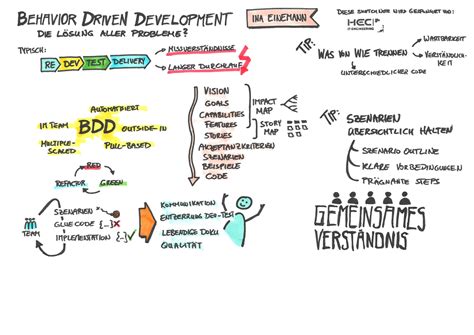 BEHAVIOR DRIVEN DEVELOPMENT
DIE LÖSUNG ALLER PROBLEME?
INA EINEMANN
DIESE SKETCHNOTE WIRD GESPONSERT VON
HEC
TYPISCH:
RE DEV TEST DELIVERY
MISSVERSTÄNDNISSE
LANGER DURCHLAUF
TIP:
WAS VON WIE TRENNEN
WARTBARKEIT
VERSTÄNDLICHKEIT
UNTERSCHIEDLICHER CODE
AUTOMATISIERT
IM TEAM
BDD
OUTSIDE-IN
MULTIPLE-
SCALED
PULL-BASED
RED
REFACTOR
GREEN
VISION
GOALS
CAPABILITIES
FEATURES
STORIES
AKZEPTANZKRITERIEN
SZENARIEN
BEISPIELE
CODE
IMPACT
MAP
STORY
MAP
TIP:
SZENARIEN
ÜBERSICHTLICH HALTEN
SZENARIO OUTLINE
KLARE VORBEDINGUNGEN
PRÄGNANTE STEPS
TEAM
SZENARIEN
GLUE CODE {...}
IMPLEMENTATION {...}
KOMMUNIKATION
ENTZERRUNG DEV-TEST
LEBENDIGE DOKU
QUALITÄT
GEMEINSAMES
VERSTÄNDNIS